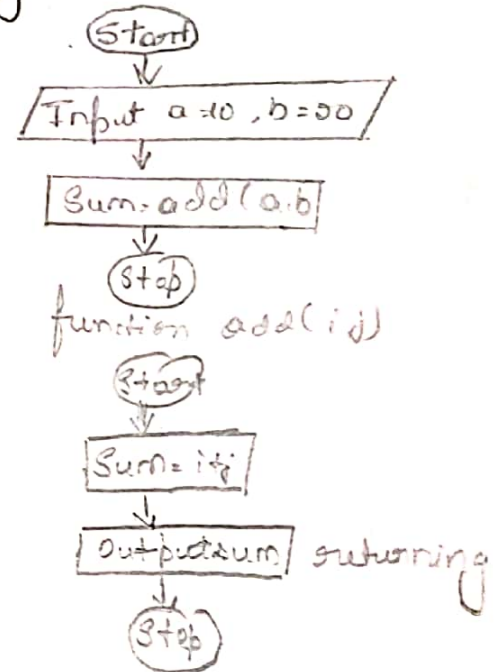 Start
Input a=10, b=20
Sum=add(a,b
Stop
function add(i,j)
Start
Sum=i+j
Output sum returning
Stop